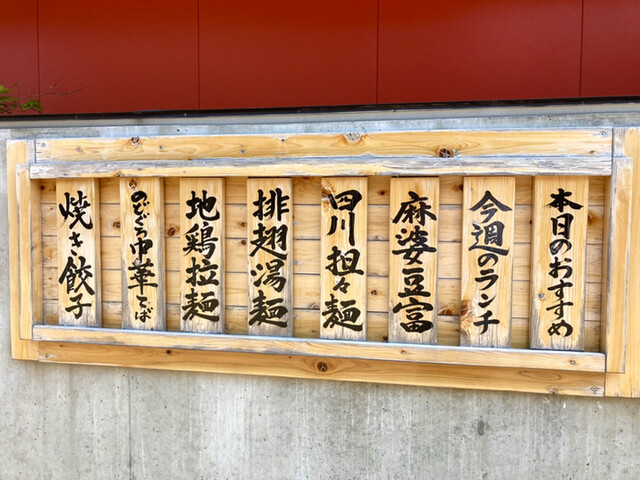 本日のおすすめ
今週のランチ
麻婆豆富
四川担々麺
排翅湯麺
地鶏拉麺
のどぐろ中華そば
焼き餃子